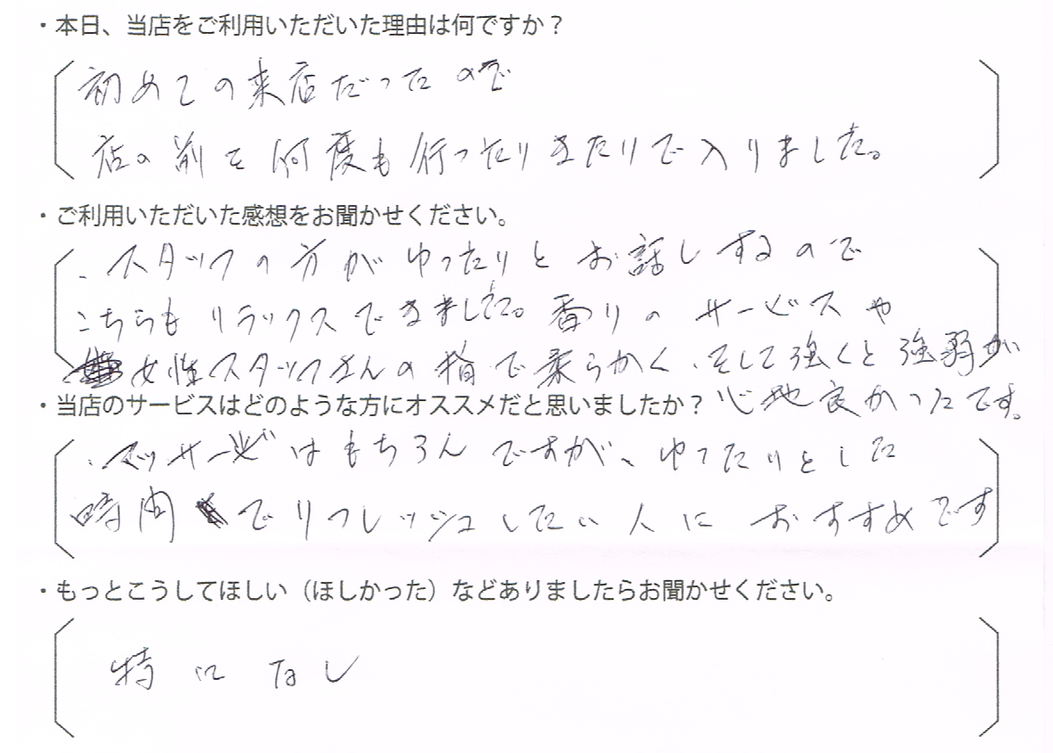 ・本日、当店をご利用いただいた理由は何ですか？
初めての来店だったので
店の前を何度も行ったりきたりで入りました。
・ご利用いただいた感想をお聞かせください。
・スタッフの方がゆったりとお話しするので
こちらもリラックスできました。香りのサービスや
女性スタッフさんの指で柔らかく、そして強くと強弱が
・当店のサービスはどのような方にオススメだと思いましたか？心地良かったです。
・マッサージはもちろんですが、ゆったりとした
時間でリフレッシュしたい人におすすめです
・もっとこうしてほしい（ほしかった）などありましたらお聞かせください。
特になし